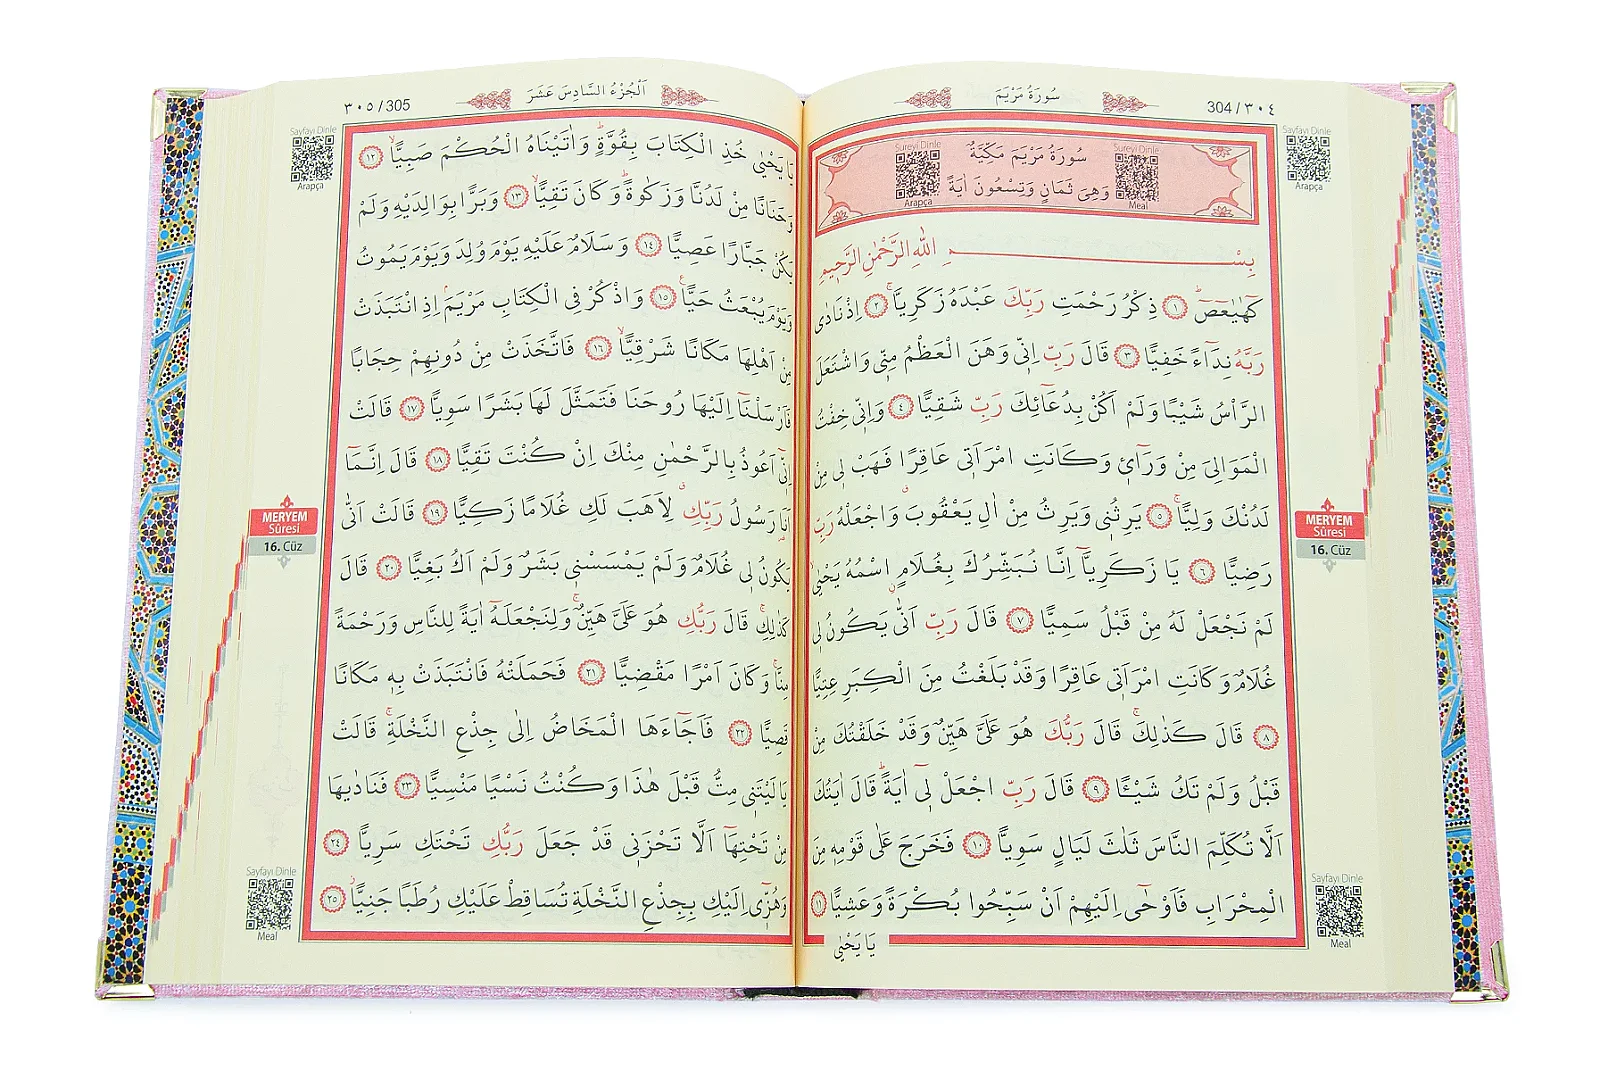 304 / ٣٠٤
سُورَةُ مَرْيَمَ
Sayfayı Dinle
Arapça
Sureyi Dinle
سُورَةُ مَرْيَمَ مَكِّيَّةٌ
Sureyi Dinle
Arapça
وَهِيَ ثَمَانٍ وَتِسْعُونَ اٰيَةً
Meal
بِسْمِ اللّٰهِ الرَّحْمٰنِ الرَّحِيمِ
كٓهٰيٰعٓصٓ ۚ ﴿١﴾ ذِكْرُ رَحْمَتِ رَبِّكَ عَبْدَهُ زَكَرِيَّاۚ ﴿٢﴾ اِذْ نَادٰى
رَبَّهُ نِدَٓاءً خَفِيًّا ﴿٣﴾ قَالَ رَبِّ اِنّ۪ي وَهَنَ الْعَظْمُ مِنّ۪ي وَاشْتَعَلَ
الرَّاْسُ شَيْبًا وَلَمْ اَكُنْ بِدُعَٓائِكَ رَبِّ شَقِيًّا ﴿٤﴾ وَاِنّ۪ي خِفْتُ
الْمَوَالِيَ مِنْ وَرَٓائ۪ي وَكَانَتِ امْرَاَت۪ي عَاقِرًا فَهَبْ ل۪ي مِنْ
لَدُنْكَ وَلِيًّاۙ ﴿٥﴾ يَرِثُن۪ي وَيَرِثُ مِنْ اٰلِ يَعْقُوبَۗ وَاجْعَلْهُ رَبِّ
رَضِيًّا ﴿٦﴾ يَا زَكَرِيَّٓا اِنَّا نُبَشِّرُكَ بِغُلَامٍۨ اسْمُهُ يَحْيٰىۙ
لَمْ نَجْعَلْ لَهُ مِنْ قَبْلُ سَمِيًّا ﴿٧﴾ قَالَ رَبِّ اَنّٰى يَكُونُ ل۪ي
غُلَامٌ وَكَانَتِ امْرَاَت۪ي عَاقِرًا وَقَدْ بَلَغْتُ مِنَ الْكِبَرِ عِتِيًّا
﴿٨﴾ قَالَ كَذٰلِكَۚ قَالَ رَبُّكَ هُوَ عَلَيَّ هَيِّنٌ وَقَدْ خَلَقْتُكَ مِنْ
قَبْلُ وَلَمْ تَكُ شَيْـًٔا ﴿٩﴾ قَالَ رَبِّ اجْعَلْ ل۪ٓي اٰيَةًۜ قَالَ اٰيَتُكَ
اَلَّا تُكَلِّمَ النَّاسَ ثَلٰثَ لَيَالٍ سَوِيًّا ﴿١٠﴾ فَخَرَجَ عَلٰى قَوْمِه۪ مِنَ
الْمِحْرَابِ فَاَوْحٰٓى اِلَيْهِمْ اَنْ سَبِّحُوا بُكْرَةً وَعَشِيًّا ﴿١١﴾
يَا يَحْيٰى
MERYEM
Sûresi
16. Cüz
Sayfayı Dinle
Meal
٣٠٥ / 305
اَلْجُزْءُ السَّادِسَ عَشَرَ
Sayfayı Dinle
Arapça
يَا يَحْيٰى خُذِ الْكِتَابَ بِقُوَّةٍۜ وَاٰتَيْنَاهُ الْحُكْمَ صَبِيًّاۙ ﴿١٢﴾
وَحَنَانًا مِنْ لَدُنَّا وَزَكٰوةًۜ وَكَانَ تَقِيًّاۙ ﴿١٣﴾ وَبَرًّا بِوَالِدَيْهِ وَلَمْ
يَكُنْ جَبَّارًا عَصِيًّا ﴿١٤﴾ وَسَلَامٌ عَلَيْهِ يَوْمَ وُلِدَ وَيَوْمَ يَمُوتُ
وَيَوْمَ يُبْعَثُ حَيًّا۟ ﴿١٥﴾ وَاذْكُرْ فِي الْكِتَابِ مَرْيَمَۢ اِذِ انْتَبَذَتْ
مِنْ اَهْلِهَا مَكَانًا شَرْقِيًّاۙ ﴿١٦﴾ فَاتَّخَذَتْ مِنْ دُونِهِمْ حِجَابًا
فَاَرْسَلْنَٓا اِلَيْهَا رُوحَنَا فَتَمَثَّلَ لَهَا بَشَرًا سَوِيًّا ﴿١٧﴾ قَالَتْ
اِنّ۪ٓي اَعُوذُ بِالرَّحْمٰنِ مِنْكَ اِنْ كُنْتَ تَقِيًّا ﴿١٨﴾ قَالَ اِنَّمَٓا
اَنَا۬ رَسُولُ رَبِّكِۗ لِاَهَبَ لَكِ غُلَامًا زَكِيًّا ﴿١٩﴾ قَالَتْ اَنّٰى
يَكُونُ ل۪ي غُلَامٌ وَلَمْ يَمْسَسْن۪ي بَشَرٌ وَلَمْ اَكُ بَغِيًّا ﴿٢٠﴾ قَالَ
كَذٰلِكِۚ قَالَ رَبُّكِ هُوَ عَلَيَّ هَيِّنٌۚ وَلِنَجْعَلَهُٓ اٰيَةً لِلنَّاسِ وَرَحْمَةً
مِنَّاۚ وَكَانَ اَمْرًا مَقْضِيًّا ﴿٢١﴾ فَحَمَلَتْهُ فَانْتَبَذَتْ بِه۪ مَكَانًا
قَصِيًّا ﴿٢٢﴾ فَاَجَٓاءَهَا الْمَخَاضُ اِلٰى جِذْعِ النَّخْلَةِۚ قَالَتْ
يَا لَيْتَن۪ي مِتُّ قَبْلَ هٰذَا وَكُنْتُ نَسْيًا مَنْسِيًّا ﴿٢٣﴾ فَنَادٰيهَا
مِنْ تَحْتِهَٓا اَلَّا تَحْزَن۪ي قَدْ جَعَلَ رَبُّكِ تَحْتَكِ سَرِيًّا ﴿٢٤﴾
وَهُزّ۪ٓي اِلَيْكِ بِجِذْعِ النَّخْلَةِ تُسَاقِطْ عَلَيْكِ رُطَبًا جَنِيًّاۘ ﴿٢٥﴾
MERYEM
Sûresi
16. Cüz
Sayfayı Dinle
Meal